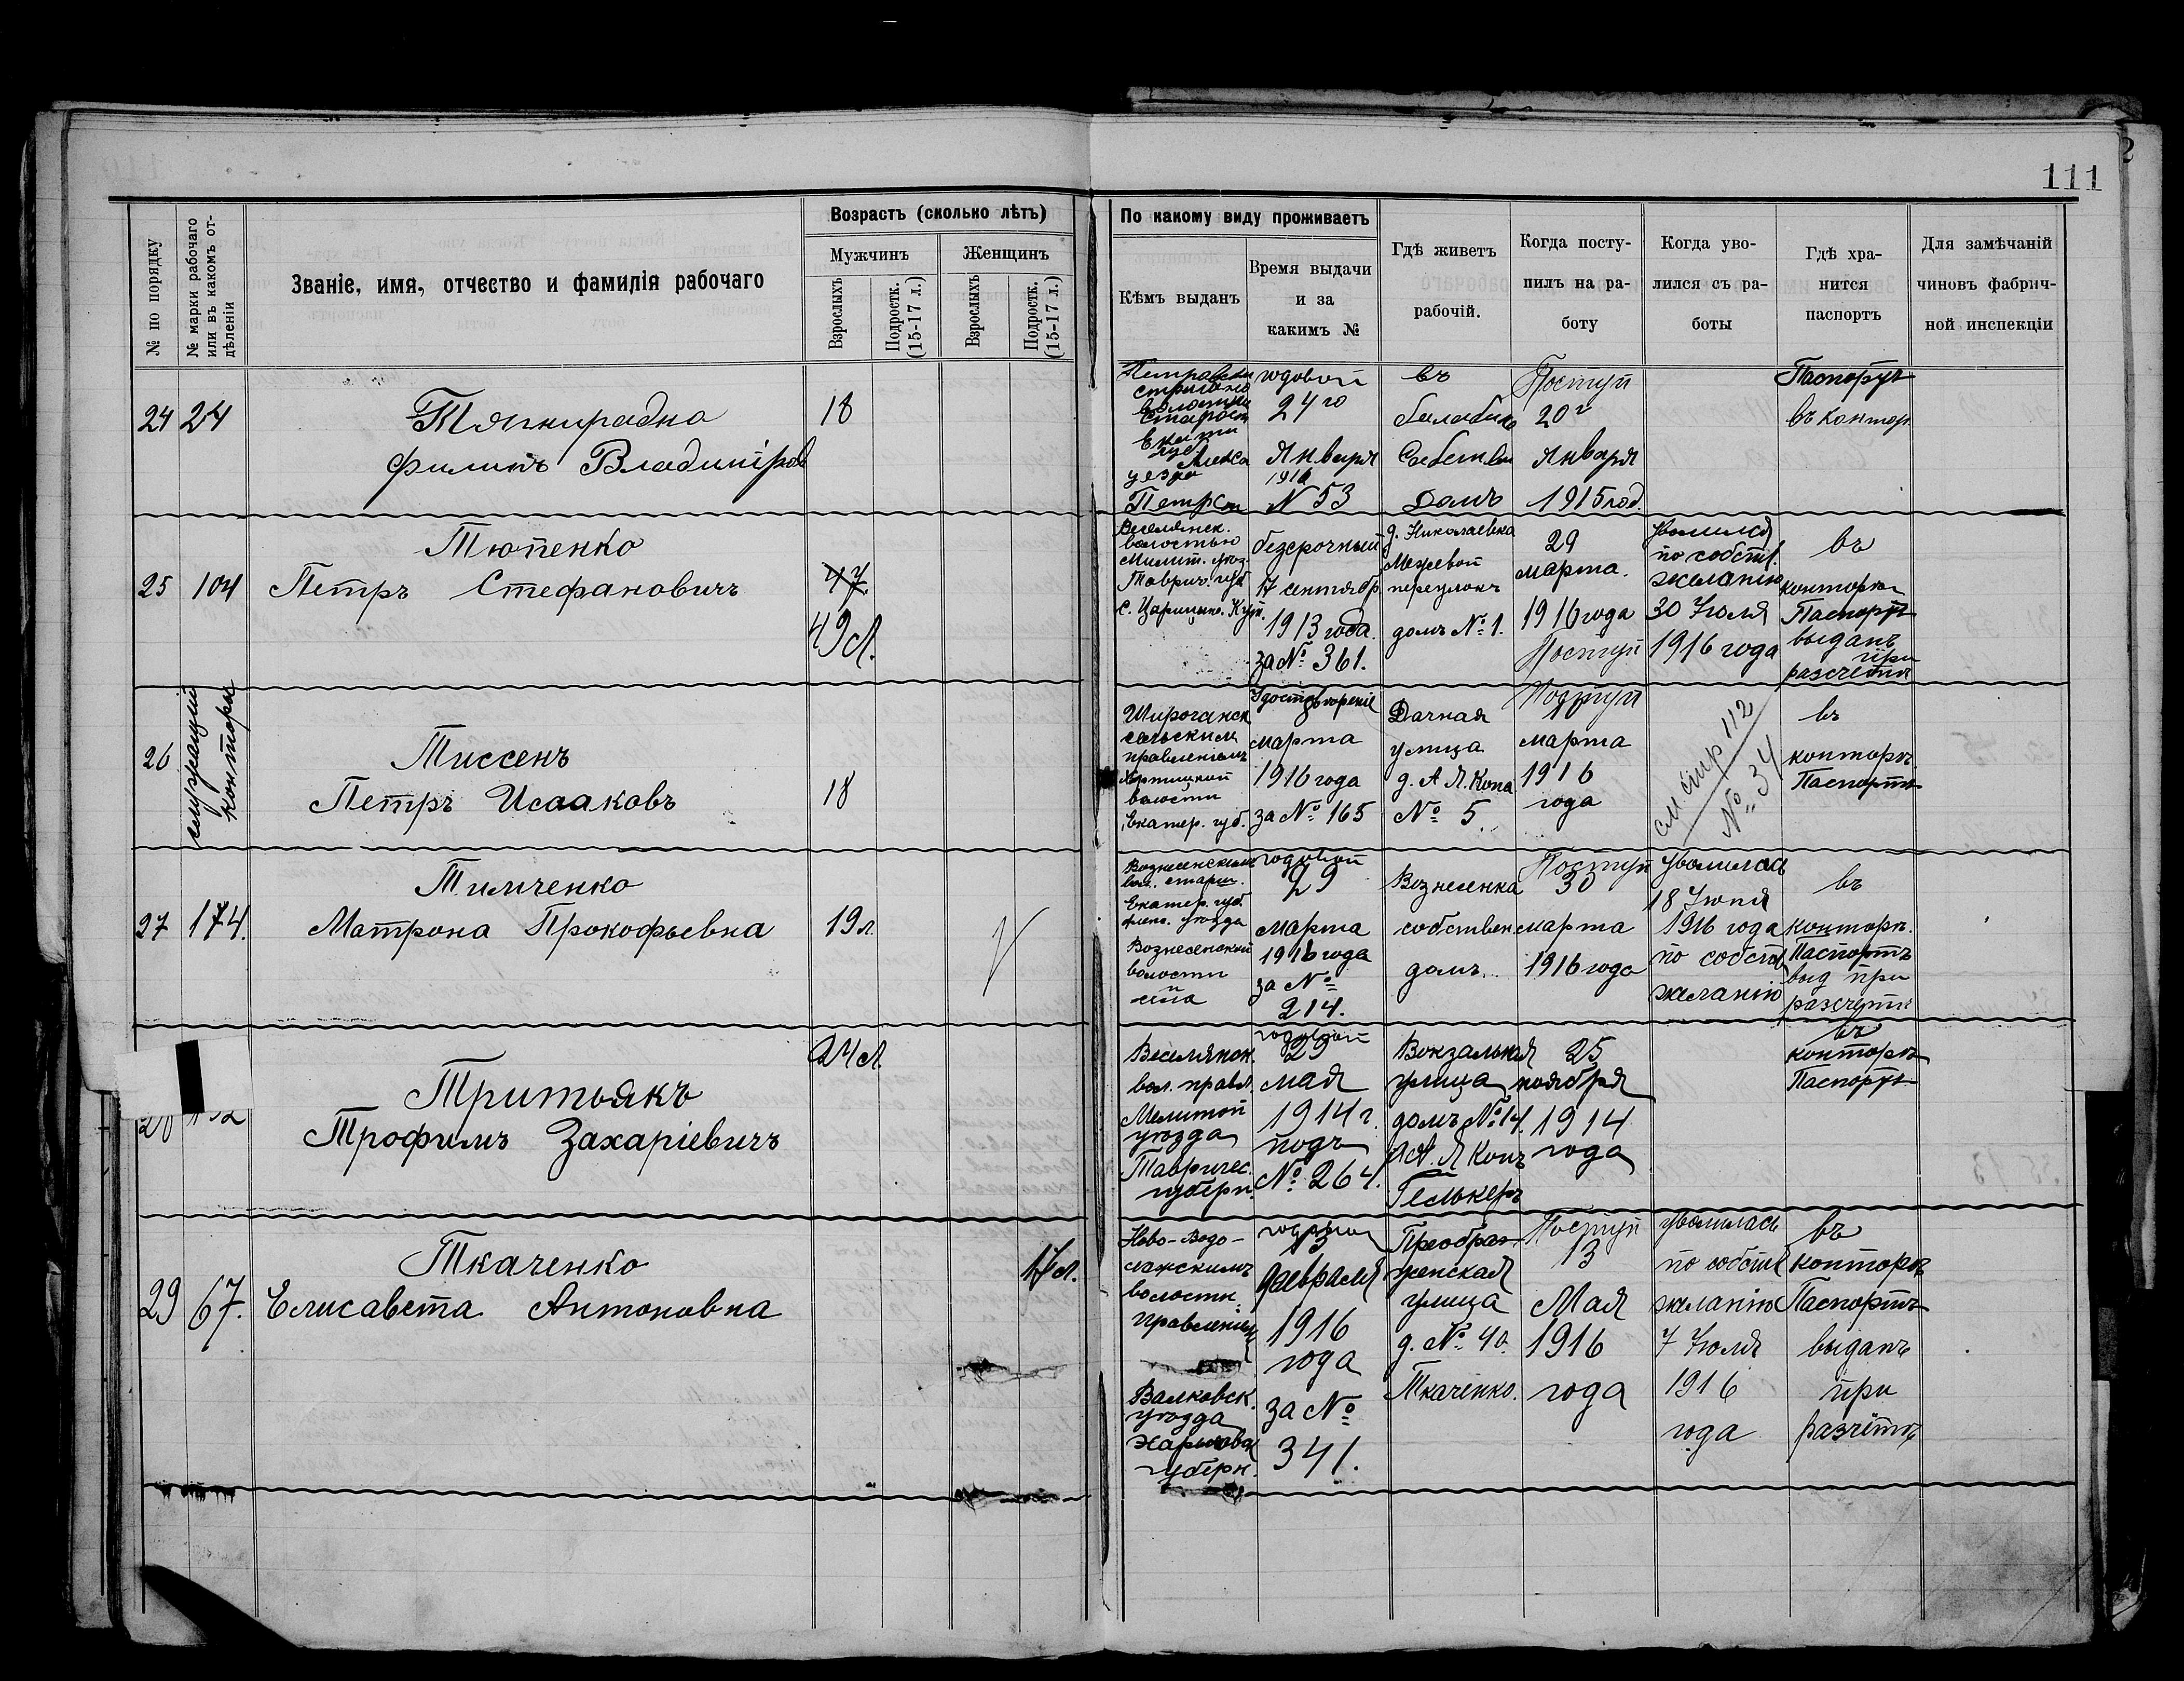 111
№ по порядку
№ марки рабочаго или въ какомъ отдѣленіи
Званіе, имя, отчество и фамилія рабочаго
Возрастъ (сколько лѣтъ)
Мужчинъ
Женщинъ
Взрослыхъ
Подростк. (15-17 л.)
Взрослыхъ
Подростк. (15-17 л.)
По какому виду проживаетъ
Кѣмъ выданъ
Время выдачи
и за
какимъ №
Гдѣ живетъ
рабочій.
Когда посту-
пилъ на ра-
боту
Когда уво-
лился съ ра-
боты
Гдѣ хра-
нится
паспортъ
Для замѣчаній
чиновъ фабрич-
ной инспекціи
24
24
Филипъ Владиміров
18
уезда
годовой
24 го
Января
1916
N 53
въ
Домъ
Поступ
20 г
Января
1915 год.
Паспортъ
въ контор
25
104
Тюпенко
Петръ Стефановичъ
47
49 л.
Веселянск.
волостью
Мелит. уѣз.
Таврич. губ.
с. Царицын. Кут.
безсрочный
17 сентябр.
1913 года.
за № 361.
д. Николаевка
Межевой
переулокъ
домъ № 1.
29
марта.
1916 года
Поступ
уволился
по собств.
желанію
30 Іюля
1916 года
въ
конторѣ
Паспортъ
выданъ
при
разсчетѣ
26
служащій
конторы
Тиссенъ
Петръ Исааковъ
18
сельским
правленіемъ
волости
Екатер. губ.
Удостовѣреніе
8
марта
1916 года
за № 165
Дачная
улица
д. А. Я. Копа
№ 5.
Поступ
марта
1916
года
см. стр 112
№ 34
въ
конторѣ
Паспортъ
27
174.
Тимченко
Матрона Прокофьевна
19 л.
V
Вознесенским
вол. старш.
Екатер. губ.
Алекс. уѣзда
Вознесенской
волости
годовой
29
марта
1916 года
за №
214.
Вознесенка
собствен.
домъ.
Поступ
30
марта
1916 года
уволилась
18 Іюня
1916 года
по собств
желанію
въ
конторѣ.
Паспортъ
выд при
разсчетѣ
Тритьякъ
Трофимъ Захаріевичъ
24 л.
Веселянск.
вол. правл.
Мелитоп
уѣзда
Тавричес.
губерн.
годовой
29
мая
1914 г.
подъ
№ 264.
Вокзальная
улица
домъ № 14.
А. Я Копъ
Гелькеръ
25
ноября
1914
года
въ
конторѣ
Паспортъ
29
67.
Ткаченко
Елисавета Антоновна
17 л.
Ново-Водо-
лажскимъ
волостн.
правленіем
Валковск.
уѣзда
Харьковск
губерн.
годовой
13
февраля
1916
года
за №
341.
Преобра-
женская
улица
д. № 40.
Ткаченко.
Поступ
13
Мая
1916
года
уволилась
по собств
желанію
7 Іюля
1916
года
въ
конторѣ
Паспортъ
выданъ
при
разчетѣ